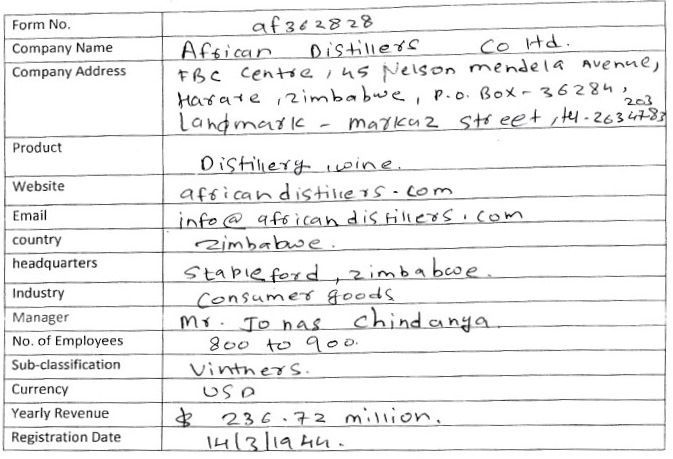 Form No. af362828
Company Name African Distillers Co ltd.
Company Address FBC Centre, 45 Nelson mendela Avenue,
Harare, Zimbabwe, P.O. Box - 36284,
Landmark - markuz street, tel - 2634783
203
Product Distillery, wine.
Website africandistillers.com
Email info@africandistillers.com
country Zimbabwe.
headquarters Stapleford, Zimbabwe.
Industry Consumer goods
Manager Mr. Jonas Chindanya
No. of Employees 800 to 900.
Sub-classification Vintners.
Currency USD
Yearly Revenue $ 236.72 million.
Registration Date 14/3/1944.